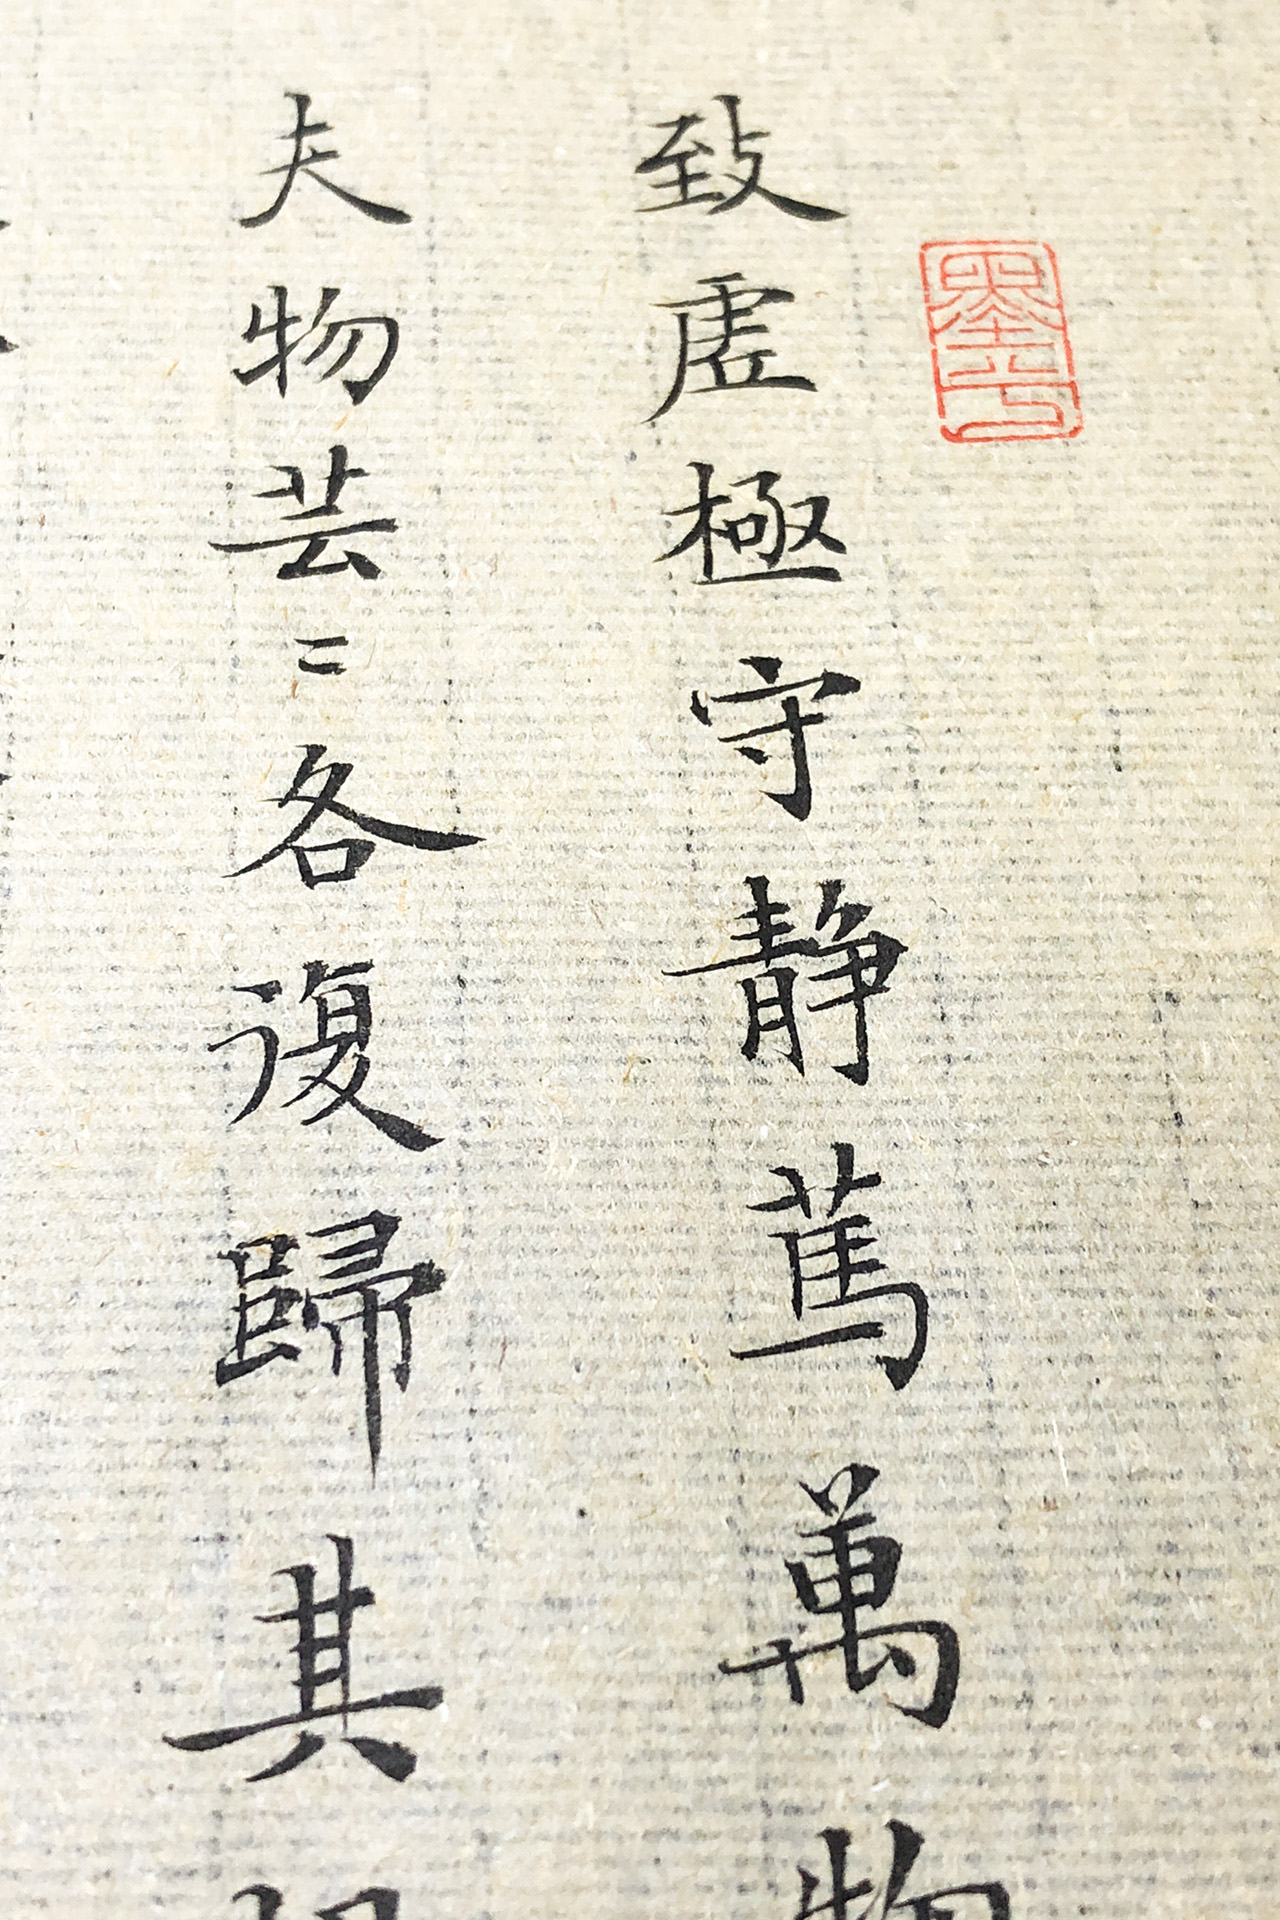 致虛極守静萬萬物
夫物芸〻各復歸其根